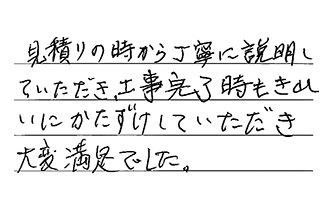 見積りの時から丁寧に説明し
ていただき、工事完了時もきれ
いにかたずけしていただき
大変満足でした。